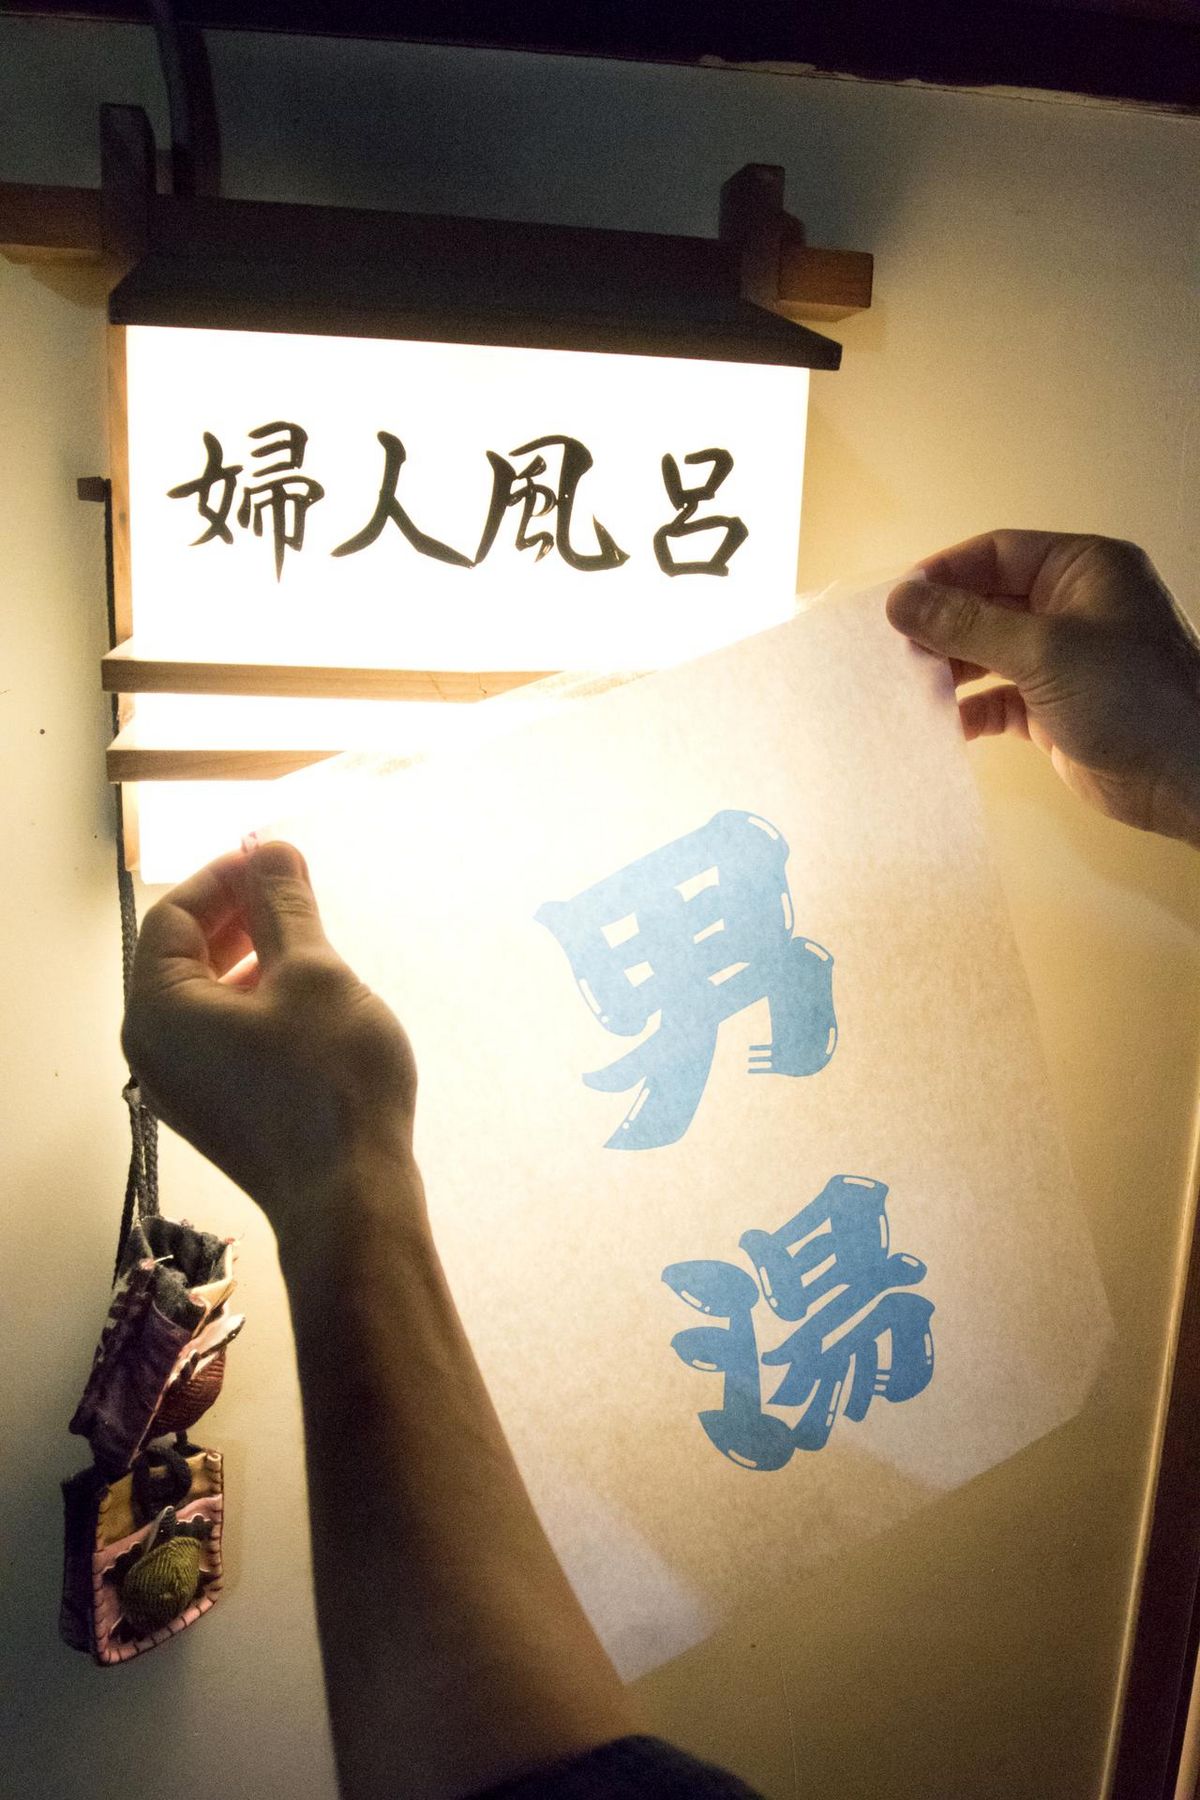 婦人風呂
男
湯